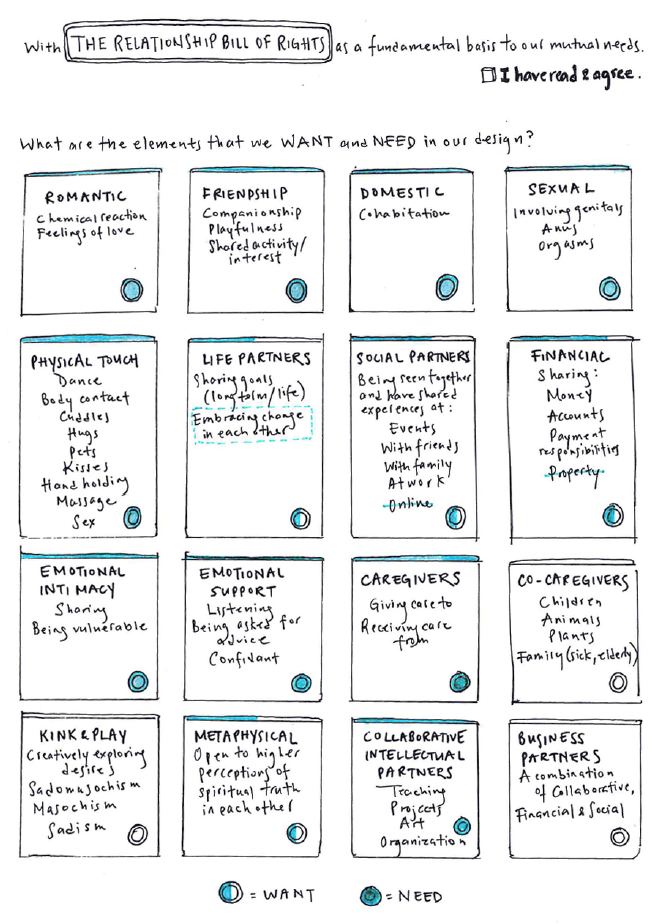 With THE RELATIONSHIP BILL OF RIGHTS as a fundamental basis to our mutual needs.
I have read & agree.
What are the elements that we WANT and NEED in our design?
ROMANTIC
Chemical reaction
Feelings of love
FRIENDSHIP
Companionship
Playfulness
Shared activity/
interest
DOMESTIC
Cohabitation
SEXUAL
Involving genitals
Anus
Orgasms
PHYSICAL TOUCH
Dance
Body contact
Cuddles
Hugs
Pets
Kisses
Hand holding
Massage
Sex
LIFE PARTNERS
Sharing goals
(long term/life)
Embracing change
in each other
SOCIAL PARTNERS
Being seen together
and have shared
experiences at:
Events
With friends
With family
At work
Online
FINANCIAL
Sharing:
Money
Accounts
Payment
responsibilities
Property
EMOTIONAL
INTIMACY
Sharing
Being vulnerable
EMOTIONAL
SUPPORT
Listening
Being asked for
advice
Confidant
CAREGIVERS
Giving care to
Receiving care
from
CO-CAREGIVERS
Children
Animals
Plants
Family (sick, elderly)
KINK & PLAY
Creatively exploring
desires
Sadomasochism
Masochism
Sadism
METAPHYSICAL
Open to higher
perceptions of
spiritual truth
in each other
COLLABORATIVE
INTELLECTUAL
PARTNERS
Teaching
Projects
Art
Organization
BUSINESS
PARTNERS
A combination
of Collaborative,
Financial & Social
= WANT
= NEED